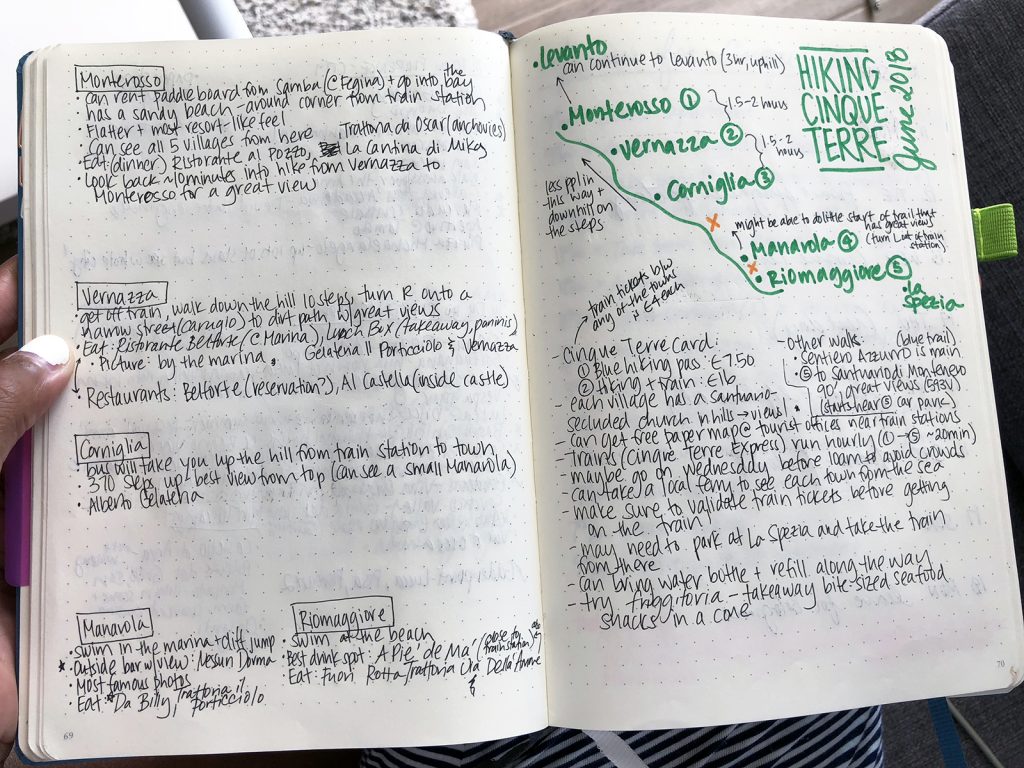 Monterosso
• can rent paddle board from Samba (@Fegina) + go into the bay
• has a sandy beach - around corner from train station
• Flatter + most resort-like feel
• Can see all 5 villages from here
Trattoria da Oscar (anchovies)
• Eat: (dinner) Ristorante al Pozzo, La Cantina di Miky
• Look back ~10 minutes into hike from Vernazza to
Monterosso for a great view
Vernazza
• get off train, walk down the hill 10 steps, turn R onto a
narrow street (carugio) to dirt path w/ great views
• Eat: Ristorante Belforte (@ Marina), Lunch Box (takeaway, paninis)
• Picture: by the marina
• Gelateria Il Porticciolo & Vernazza
Restaurants: Belforte (reservation?), Al Castello (inside castle)
Corniglia
• bus will take you up the hill from train station to town
• 370 steps up - best view from top (can see a small Manarola)
• Alberto Gelateria
Manarola
• swim in the marina + cliff jump
• outside bar w/ view: Nessun Dorma
• Most famous photos
• Eat: Da Billy, Trattoria il Porticciolo
Riomaggiore
• swim at the beach
• Best drink spot: A Pie' de Ma' (close to train station)
• Eat: Fuori Rotta, Trattoria Via Dell'Amore
69
HIKING
CINQUE
TERRE
June 2018
• Levanto
can continue to Levanto (3hr, uphill)
• Monterosso ①
1.5-2 hours
• Vernazza ②
1.5-2 hours
• Corniglia ③
less ppl in
this way +
downhill on
the steps
might be able to do little start of trail that
has great views
(turn L out of train
station)
• Manarola ④
• Riomaggiore ⑤
• La
Spezia
train tickets b/w
any of the towns
is €4 each
- Cinque Terre Card:
① Blue hiking pass: €7.50
② Hiking + train: €16
- each village has a santuario -
secluded church in hills → views!
- other walks (blue trail)
• Sentiero Azzurro is main
• ⑤ to Santuario di Montenero
90', great views (593V)
(starts near ⑤ car park)
- can get free paper map @ tourist offices near train stations
- trains (Cinque Terre Express) run hourly (① → ⑤ ~20min)
- maybe go on Wednesday before 10am to avoid crowds
- can take a local ferry to see each town from the sea
- make sure to validate train tickets before getting
on the train
- may need to park at La Spezia and take the train
from there
- can bring water bottle + refill along the way
- try friggitoria - takeaway bite-sized seafood
snacks in a cone
70